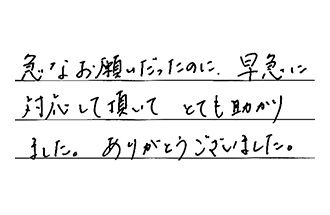 急なお願いだったのに、早急に
対応して頂いて とても助かり
ました。ありがとうございました。